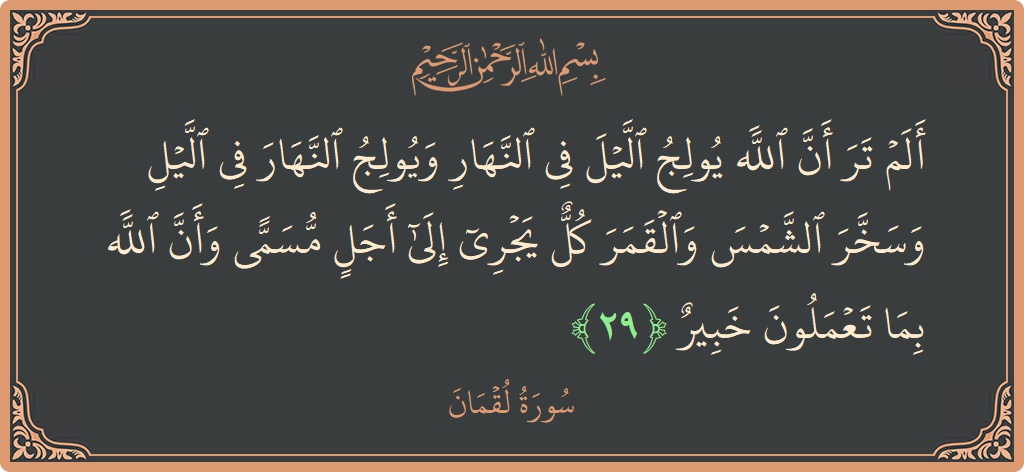 بِسْمِ اللهِ الرَّحْمٰنِ الرَّحِيْمِ
أَلَمۡ تَرَ أَنَّ ٱللَّهَ يُولِجُ ٱلَّيۡلَ فِي ٱلنَّهَارِ وَيُولِجُ ٱلنَّهَارَ فِي ٱلَّيۡلِ
وَسَخَّرَ ٱلشَّمۡسَ وَٱلۡقَمَرَ كُلّٞ يَجۡرِيٓ إِلَىٰٓ أَجَلٖ مُّسَمّٗى وَأَنَّ ٱللَّهَ
بِمَا تَعۡمَلُونَ خَبِيرٞ ﴿٢٩﴾
سُورَةُ لُقۡمَانَ